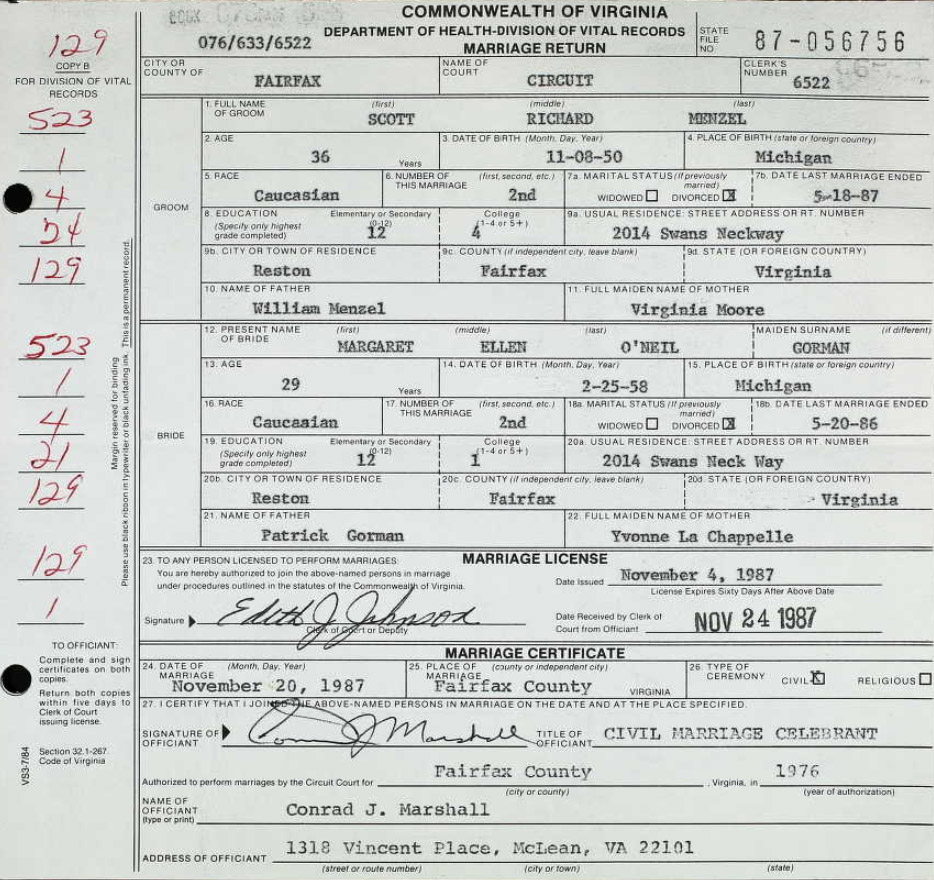 COMMONWEALTH OF VIRGINIA
DEPARTMENT OF HEALTH-DIVISION OF VITAL RECORDS
MARRIAGE RETURN
076/633/6522
STATE FILE NO. 87-056756
129
COPY B
FOR DIVISION OF VITAL RECORDS
CITY OR COUNTY OF FAIRFAX
NAME OF COURT CIRCUIT
CLERK'S NUMBER 6522
523
1
4
54
129
523
1
4
21
129
129
1
GROOM
1. FULL NAME OF GROOM (first) SCOTT (middle) RICHARD (last) MENZEL
2. AGE 36 Years
3. DATE OF BIRTH (Month, Day, Year) 11-08-50
4. PLACE OF BIRTH (state or foreign country) Michigan
5. RACE Caucasian
6. NUMBER OF THIS MARRIAGE (first, second, etc.) 2nd
7a. MARITAL STATUS (If previously married) WIDOWED ☐ DIVORCED ☒
7b. DATE LAST MARRIAGE ENDED 5-18-87
8. EDUCATION (Specify only highest grade completed) Elementary or Secondary (0-12) 12 College (1-4 or 5+) 4
9a. USUAL RESIDENCE: STREET ADDRESS OR RT. NUMBER 2014 Swans Neckway
9b. CITY OR TOWN OF RESIDENCE Reston
9c. COUNTY (if independent city, leave blank) Fairfax
9d. STATE (OR FOREIGN COUNTRY) Virginia
10. NAME OF FATHER William Menzel
11. FULL MAIDEN NAME OF MOTHER Virginia Moore
BRIDE
12. PRESENT NAME OF BRIDE (first) MARGARET (middle) ELLEN (last) O'NEIL MAIDEN SURNAME (if different) GORMAN
13. AGE 29 Years
14. DATE OF BIRTH (Month, Day, Year) 2-25-58
15. PLACE OF BIRTH (state or foreign country) Michigan
16. RACE Caucasian
17. NUMBER OF THIS MARRIAGE (first, second, etc.) 2nd
18a. MARITAL STATUS (If previously married) WIDOWED ☐ DIVORCED ☒
18b. DATE LAST MARRIAGE ENDED 5-20-86
19. EDUCATION (Specify only highest grade completed) Elementary or Secondary (0-12) 12 College (1-4 or 5+) 1
20a. USUAL RESIDENCE: STREET ADDRESS OR RT. NUMBER 2014 Swans Neck Way
20b. CITY OR TOWN OF RESIDENCE Reston
20c. COUNTY (if independent city, leave blank) Fairfax
20d. STATE (OR FOREIGN COUNTRY) Virginia
21. NAME OF FATHER Patrick Gorman
22. FULL MAIDEN NAME OF MOTHER Yvonne La Chappelle
Margin reserved for binding
Please use black ribbon in typewriter or black unfading ink. This is a permanent record.
MARRIAGE LICENSE
23. TO ANY PERSON LICENSED TO PERFORM MARRIAGES:
You are hereby authorized to join the above-named persons in marriage
under procedures outlined in the statutes of the Commonwealth of Virginia.
Date Issued November 4, 1987
License Expires Sixty Days After Above Date
Signature Edith J. Johnson
Clerk of Court or Deputy
Date Received by Clerk of Court from Officiant NOV 24 1987
TO OFFICIANT:
Complete and sign certificates on both copies.
Return both copies within five days to Clerk of Court issuing license.
Section 32.1-267. Code of Virginia
VS3-7/84
MARRIAGE CERTIFICATE
24. DATE OF MARRIAGE (Month, Day, Year) November 20, 1987
25. PLACE OF MARRIAGE (county or independent city) Fairfax County VIRGINIA
26. TYPE OF CEREMONY CIVIL ☒ RELIGIOUS ☐
27. I CERTIFY THAT I JOINED THE ABOVE-NAMED PERSONS IN MARRIAGE ON THE DATE AND AT THE PLACE SPECIFIED.
SIGNATURE OF OFFICIANT Conrad J Marshall
TITLE OF OFFICIANT CIVIL MARRIAGE CELEBRANT
Authorized to perform marriages by the Circuit Court for Fairfax County, Virginia, in 1976
(city or county) (year of authorization)
NAME OF OFFICIANT (type or print) Conrad J. Marshall
ADDRESS OF OFFICIANT 1318 Vincent Place, McLean, VA 22101
(street or route number) (city or town) (state)